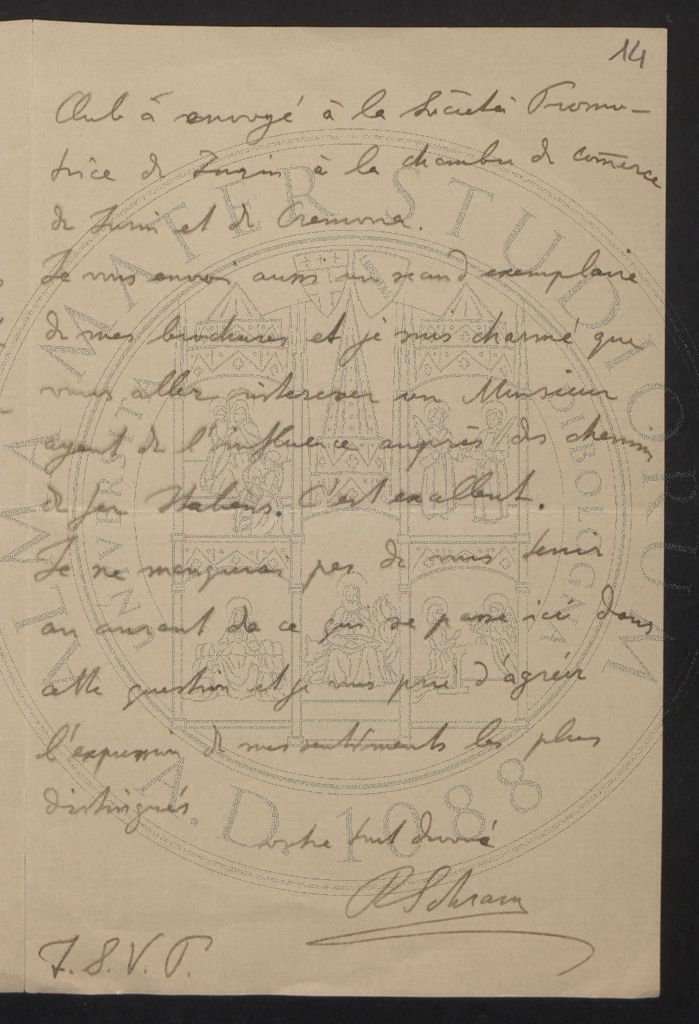 14
Club à envoyé à la Société Promo-
trice de Turin à la chambre de comerce
de Turin et de Cremona.
Je vous envoi aussi un second exemplaire
de mes brochures et je suis charmé que
vous allez interesser un Monsieur
ayant de l'influence auprès des chemins
de fer Italiens. C'est excellent.
Je ne manquerai pas de vous tenir
au courant de ce qui se passe ici dans
cette question et je vous prie d'agréer
l'expression de mes sentiments les plus
distingués
votre tout devoué
R Schram
T. S. V. P.
ALMA MATER STUDIORUM
UNIVERSITÀ DI BOLOGNA
A.D. 1088